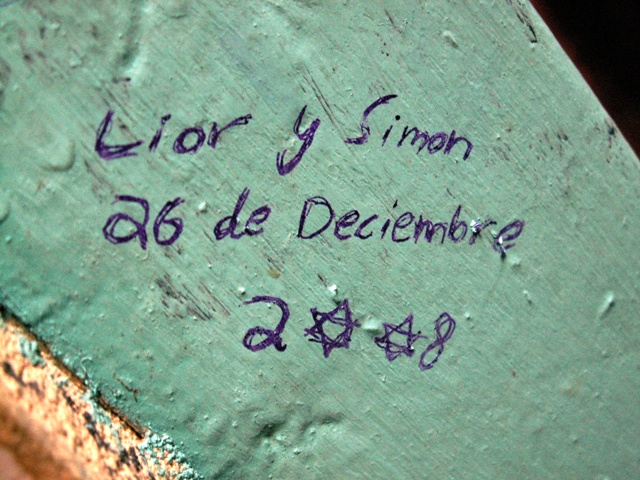 Lior y Simon
26 de Deciembre
2✡✡8